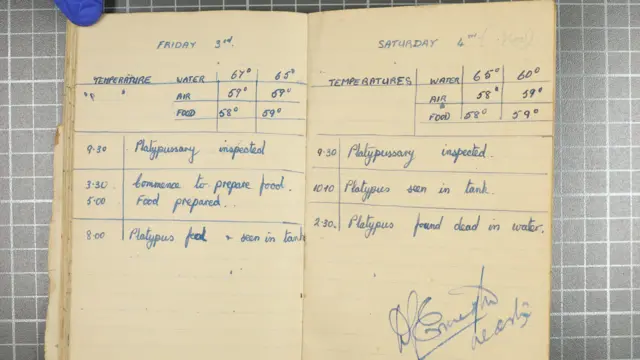 FRIDAY 3rd.
TEMPERATURE WATER 67° 65°
" " AIR 59° 59°
FOOD 58° 59°
9.30 Platypussary inspected
3.30 Commence to prepare food.
5.00 Food prepared..
8.00 Platypus food & seen in tank
SATURDAY 4
TEMPERATURES WATER 65° 60°
AIR 58° 59°
FOOD 58° 59°
9.30 Platypussary inspected.
10.10 Platypus seen in tank.
2.30. Platypus found dead in water.